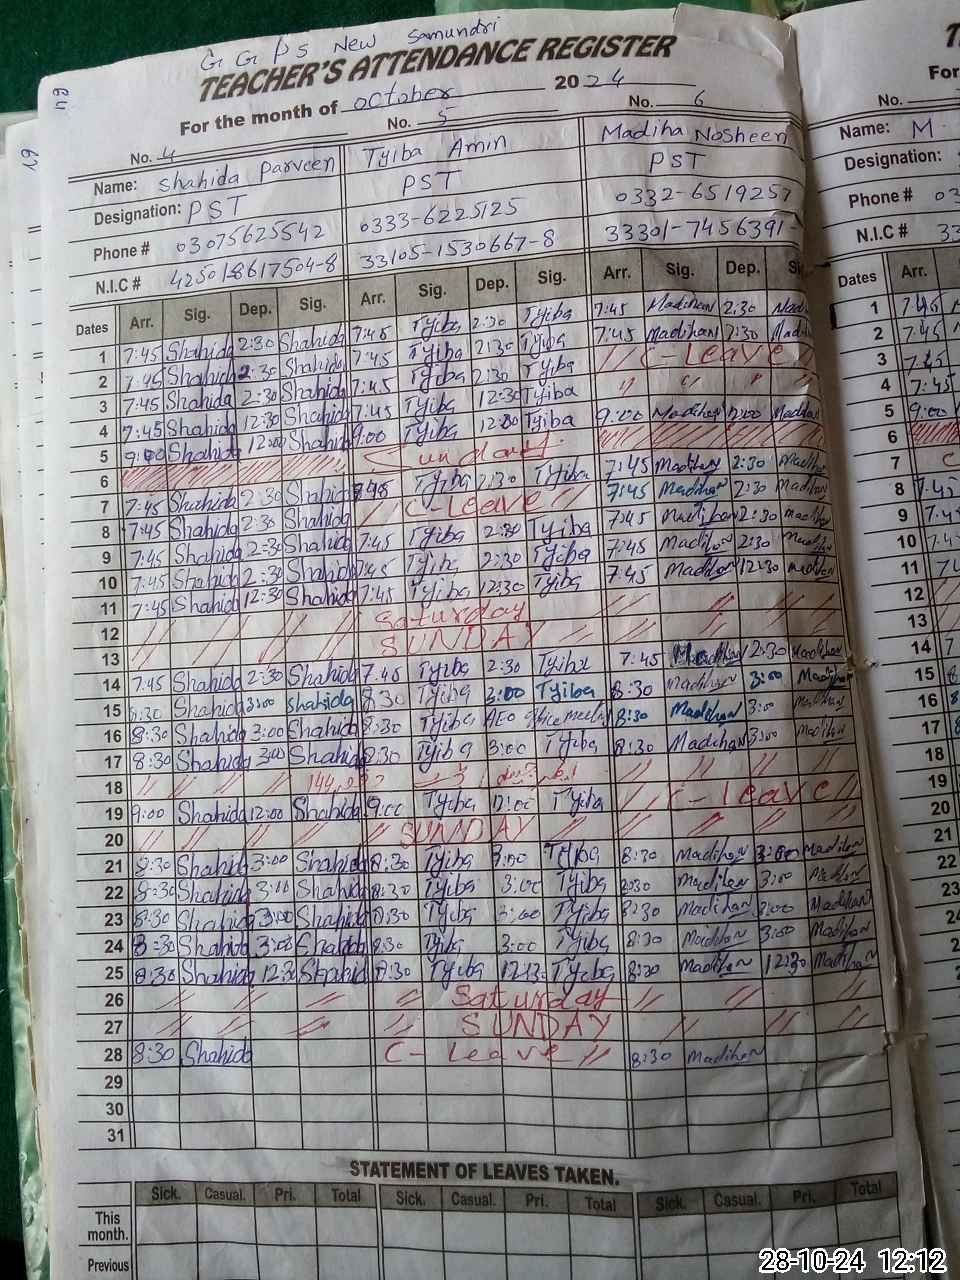 G G P S New Samundri
TEACHER'S ATTENDANCE REGISTER
For the month of October 2024
No. 4 No. 5 No. 6
Name: Shahida Parveen Tyiba Amin Madiha Nosheen
Designation: PST PST PST
Phone # 03075625542 0333-6225125 0332-6519257
N.I.C # 33105-1530667-8 33301-7456391-
Dates Arr. Sig. Dep. Sig. Arr. Sig. Dep. Sig. Arr. Sig. Dep.
1 7:45 Shahida 2:30 Shahida 7:45 Tyiba 2:30 Tyiba 7:45 Madihan 2:30
2 7:45 Shahida 2:30 Shahida 7:45 Tyiba 2:30 Tyiba 7:45 Madihan 2:30
3 7:45 Shahida 2:30 Shahida 7:45 Tyiba 2:30 Tyiba C-Leave
4 7:45 Shahida 12:30 Shahida 7:45 Tyiba 12:30 Tyiba " " " "
5 9:00 Shahida 12:00 Shahida 9:00 Tyiba 12:00 Tyiba 9:00 Madihan 12:00 Madihan
6 Sunday
7 7:45 Shahida 2:30 Shahida 7:45 Tyiba 2:30 Tyiba 7:45 Madihan 2:30 Madihan
8 7:45 Shahida 2:30 Shahida C-Leave 7:45 Madihan 2:30 Madihan
9 7:45 Shahida 2:30 Shahida 7:45 Tyiba 2:30 Tyiba 7:45 Madihan 2:30 Madihan
10 7:45 Shahida 2:30 Shahida 7:45 Tyiba 2:30 Tyiba 7:45 Madihan 2:30 Madihan
11 7:45 Shahida 12:30 Shahida 7:45 Tyiba 12:30 Tyiba 7:45 Madihan 12:30 Madihan
12 Saturday
13 SUNDAY
14 7:45 Shahida 2:30 Shahida 7:45 Tyiba 2:30 Tyiba 7:45 Madihan 2:30 Madihan
15 8:30 Shahida 3:00 Shahida 8:30 Tyiba 3:00 Tyiba 8:30 Madihan 3:00 Madihan
16 8:30 Shahida 3:00 Shahida 8:30 Tyiba AEO office meeting 8:30 Madihan 3:00 Madihan
17 8:30 Shahida 3:00 Shahida 8:30 Tyiba 3:00 Tyiba 8:30 Madihan 3:00 Madihan
18 144
19 9:00 Shahida 12:00 Shahida 9:00 Tyiba 12:00 Tyiba C-Leave
20 SUNDAY
21 8:30 Shahida 3:00 Shahida 8:30 Tyiba 3:00 Tyiba 8:30 Madihan 3:00 Madihan
22 8:30 Shahida 3:00 Shahida 8:30 Tyiba 3:00 Tyiba 8:30 Madihan 3:00 Madihan
23 8:30 Shahida 3:00 Shahida 8:30 Tyiba 3:00 Tyiba 8:30 Madihan 3:00 Madihan
24 8:30 Shahida 3:00 Shahida 8:30 Tyiba 3:00 Tyiba 8:30 Madihan 3:00 Madihan
25 8:30 Shahida 12:30 Shahida 8:30 Tyiba 12:30 Tyiba 8:30 Madihan 12:30 Madihan
26 Saturday
27 SUNDAY
28 8:30 Shahida C-Leave 8:30 Madihan
29
30
31
STATEMENT OF LEAVES TAKEN.
Sick. Casual. Pri. Total Sick. Casual. Pri. Total Sick. Casual. Pri. Total
This month.
Previous
For
No.
Name: M
Designation:
Phone # 03
N.I.C # 33
Dates Arr.
1 7:45
2 7:45
3 7:45
4 7:45
5 9:00
6
7
8
9
10
11
12
13
14
15
16
17
18
19
20
21
22
23
28-10-24 12:12